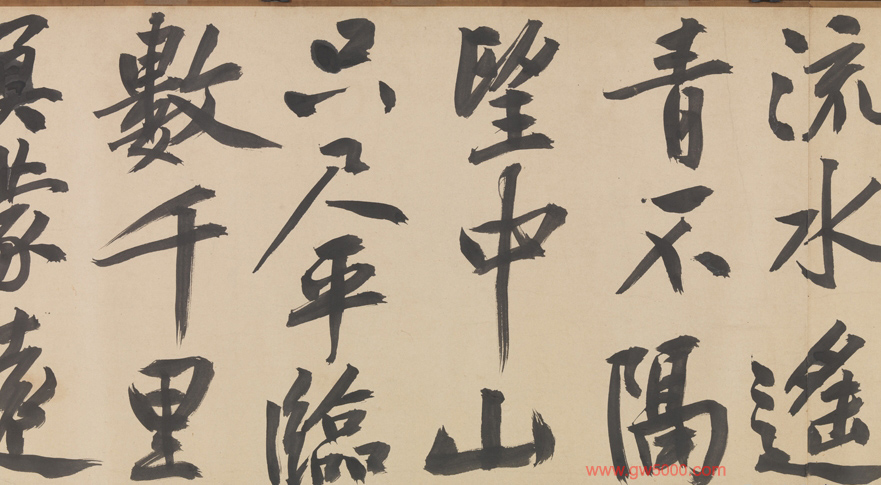 流水遙
青不隔
望中山
只尺平臨
數千里
冥蒙遠
www.gw5000.com